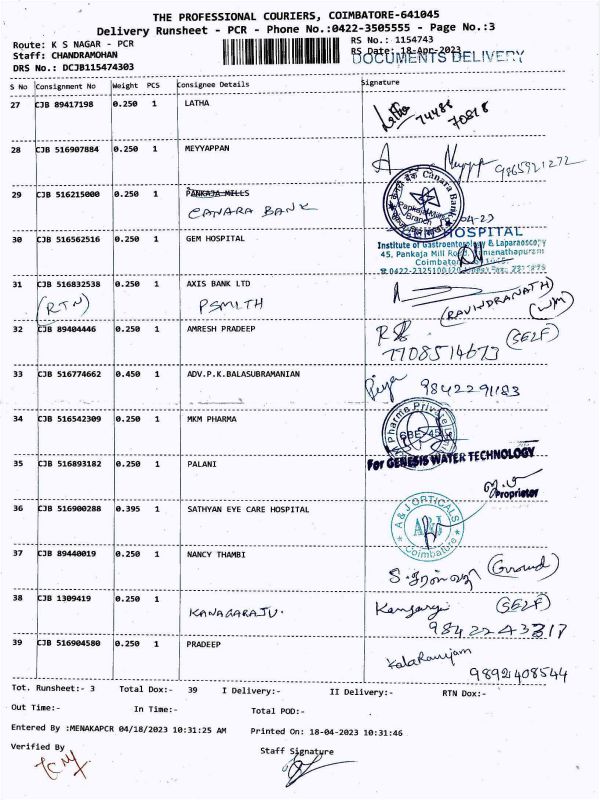 THE PROFESSIONAL COURIERS, COIMBATORE-641045
Delivery Runsheet - PCR - Phone No.:0422-3505555 - Page No.:3
Route: K S NAGAR - PCR
RS No.: 1154743
Staff: CHANDRAMOHAN
RS Date: 18-Apr-2023
DOCUMENTS DELIVERY
DRS No.: DCJB115474303
S No Consignment No Weight PCS Consignee Details Signature
27 CJB 89417198 0.250 1 LATHA Latha 74488
70818
28 CJB 516907884 0.250 1 MEYYAPPAN 9865921272
29 CJB 516215000 0.250 1 PANKAJA MILLS Canara Bank
CANARA BANK Pankaja Mills Branch 04-23
30 CJB 516562516 0.250 1 GEM HOSPITAL HOSPITAL
Institute of Gastroenterology & Laparoscopy
45, Pankaja Mill Road, Ramanathapuram
Coimbatore
31 CJB 516832538 0.250 1 AXIS BANK LTD (RAVINDRANATH)
(RTN) PSMITH
32 CJB 89404446 0.250 1 AMRESH PRADEEP (SELF)
7708514673
33 CJB 516774662 0.450 1 ADV.P.K.BALASUBRAMANIAN Priya 9842291183
34 CJB 516542309 0.250 1 MKM PHARMA Pharma Private
35 CJB 516893182 0.250 1 PALANI For GENESIS WATER TECHNOLOGY
Proprietor
36 CJB 516900288 0.395 1 SATHYAN EYE CARE HOSPITAL A & J OPTICALS
A&J
Coimbatore
37 CJB 89440019 0.250 1 NANCY THAMBI (Ground)
38 CJB 1309419 0.250 1 KANAGARAJU. (SELF)
9842243317
39 CJB 516904580 0.250 1 PRADEEP
9892408544
Tot. Runsheet:- 3 Total Dox:- 39 I Delivery:- II Delivery:- RTN Dox:-
Out Time:- In Time:- Total POD:-
Entered By :MENAKAPCR 04/18/2023 10:31:25 AM Printed On: 18-04-2023 10:31:46
Verified By Staff Signature